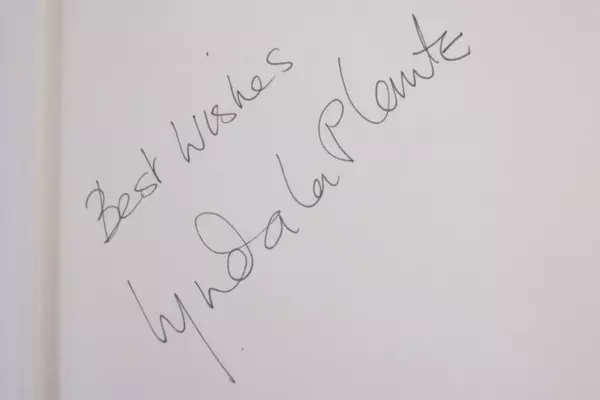 Best Wishes
Lynda La Plante